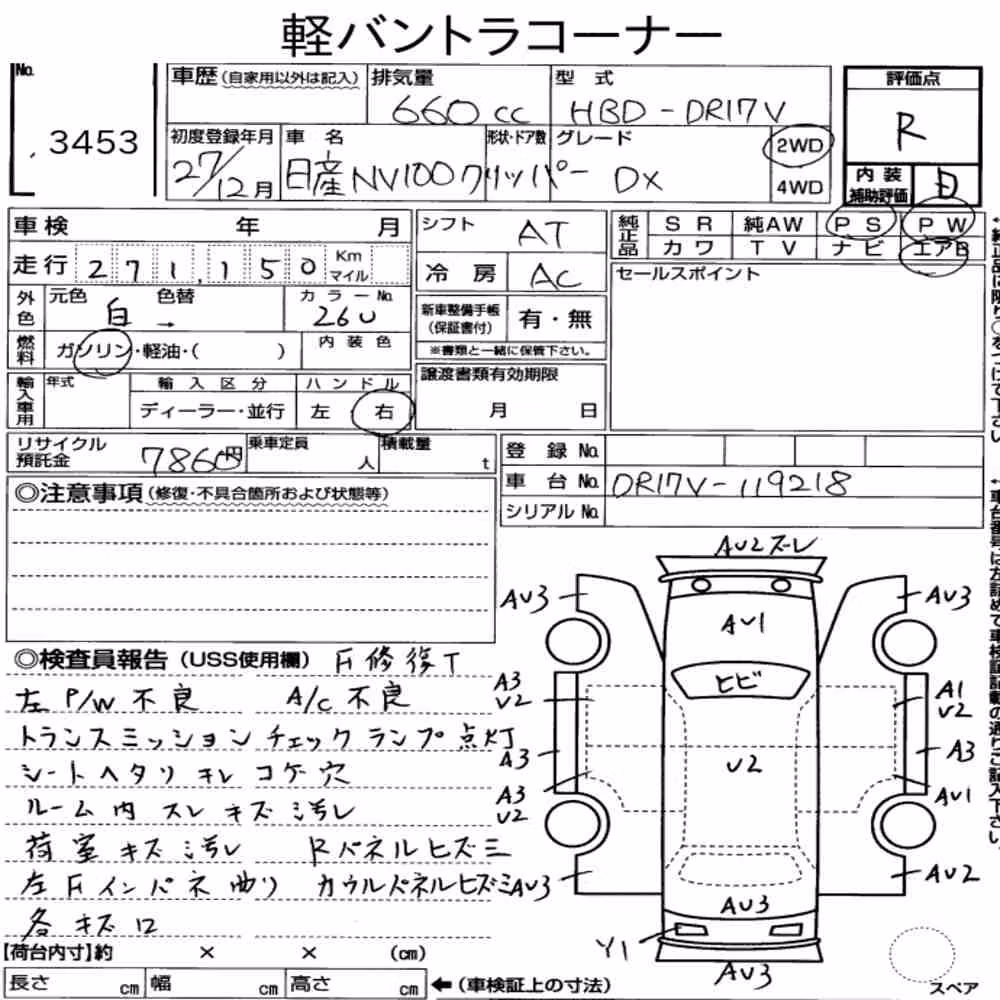 軽バントラコーナー
No. 3453
車歴(自家用以外は記入) 排気量 660 cc 型式 HBD-DR17V
初度登録年月 27/12月 車名 日産 NV100クリッパー 形状・ドア数 グレード DX 2WD 4WD
評価点 R
内装補助評価
車検 年 月
走行 271,150 Km マイル
外色 元色 白 色替 → カラーNo. 26U
燃料 ガソリン・軽油・( ) 内装色
輸入車用 年式 輸入区分 ディーラー・並行 ハンドル 左 右
シフト AT
冷房 AC
新車整備手帳(保証書付) 有・無
※書類と一緒に保管下さい。
譲渡書類有効期限
月 日
純正品 SR 純AW PS PW
カワ TV ナビ エアB
セールスポイント
←純正品に限り○をつけて下さい
リサイクル預託金 7860円 乗車定員 人 積載量 t
登録No.
車台No. DR17V-119218
シリアルNo.
←車台番号は左詰めで車検証記載の通りご記入下さい。
◎注意事項(修復・不具合箇所および状態等)
◎検査員報告(USS使用欄) F修復T
左P/W不良 A/C不良
トランスミッションチェックランプ点灯
シートヘタリ キレ コゲ穴
ルーム内 スレ キズ 汚レ
荷室キズ汚レ Rパネルヒズミ
左Fインパネ曲り カウルパネルヒズミ
各キズ口
AU2ズーレ
AU3 AU3
AU1
ヒビ
A3 U2 A1 U2
A3 U2 A3
A3 U2 AU1
AU3 AU2
AU3
Y1
AU3
スペア
【荷台内寸】約 × × (cm)
長さ cm 幅 cm 高さ cm ←(車検証上の寸法)